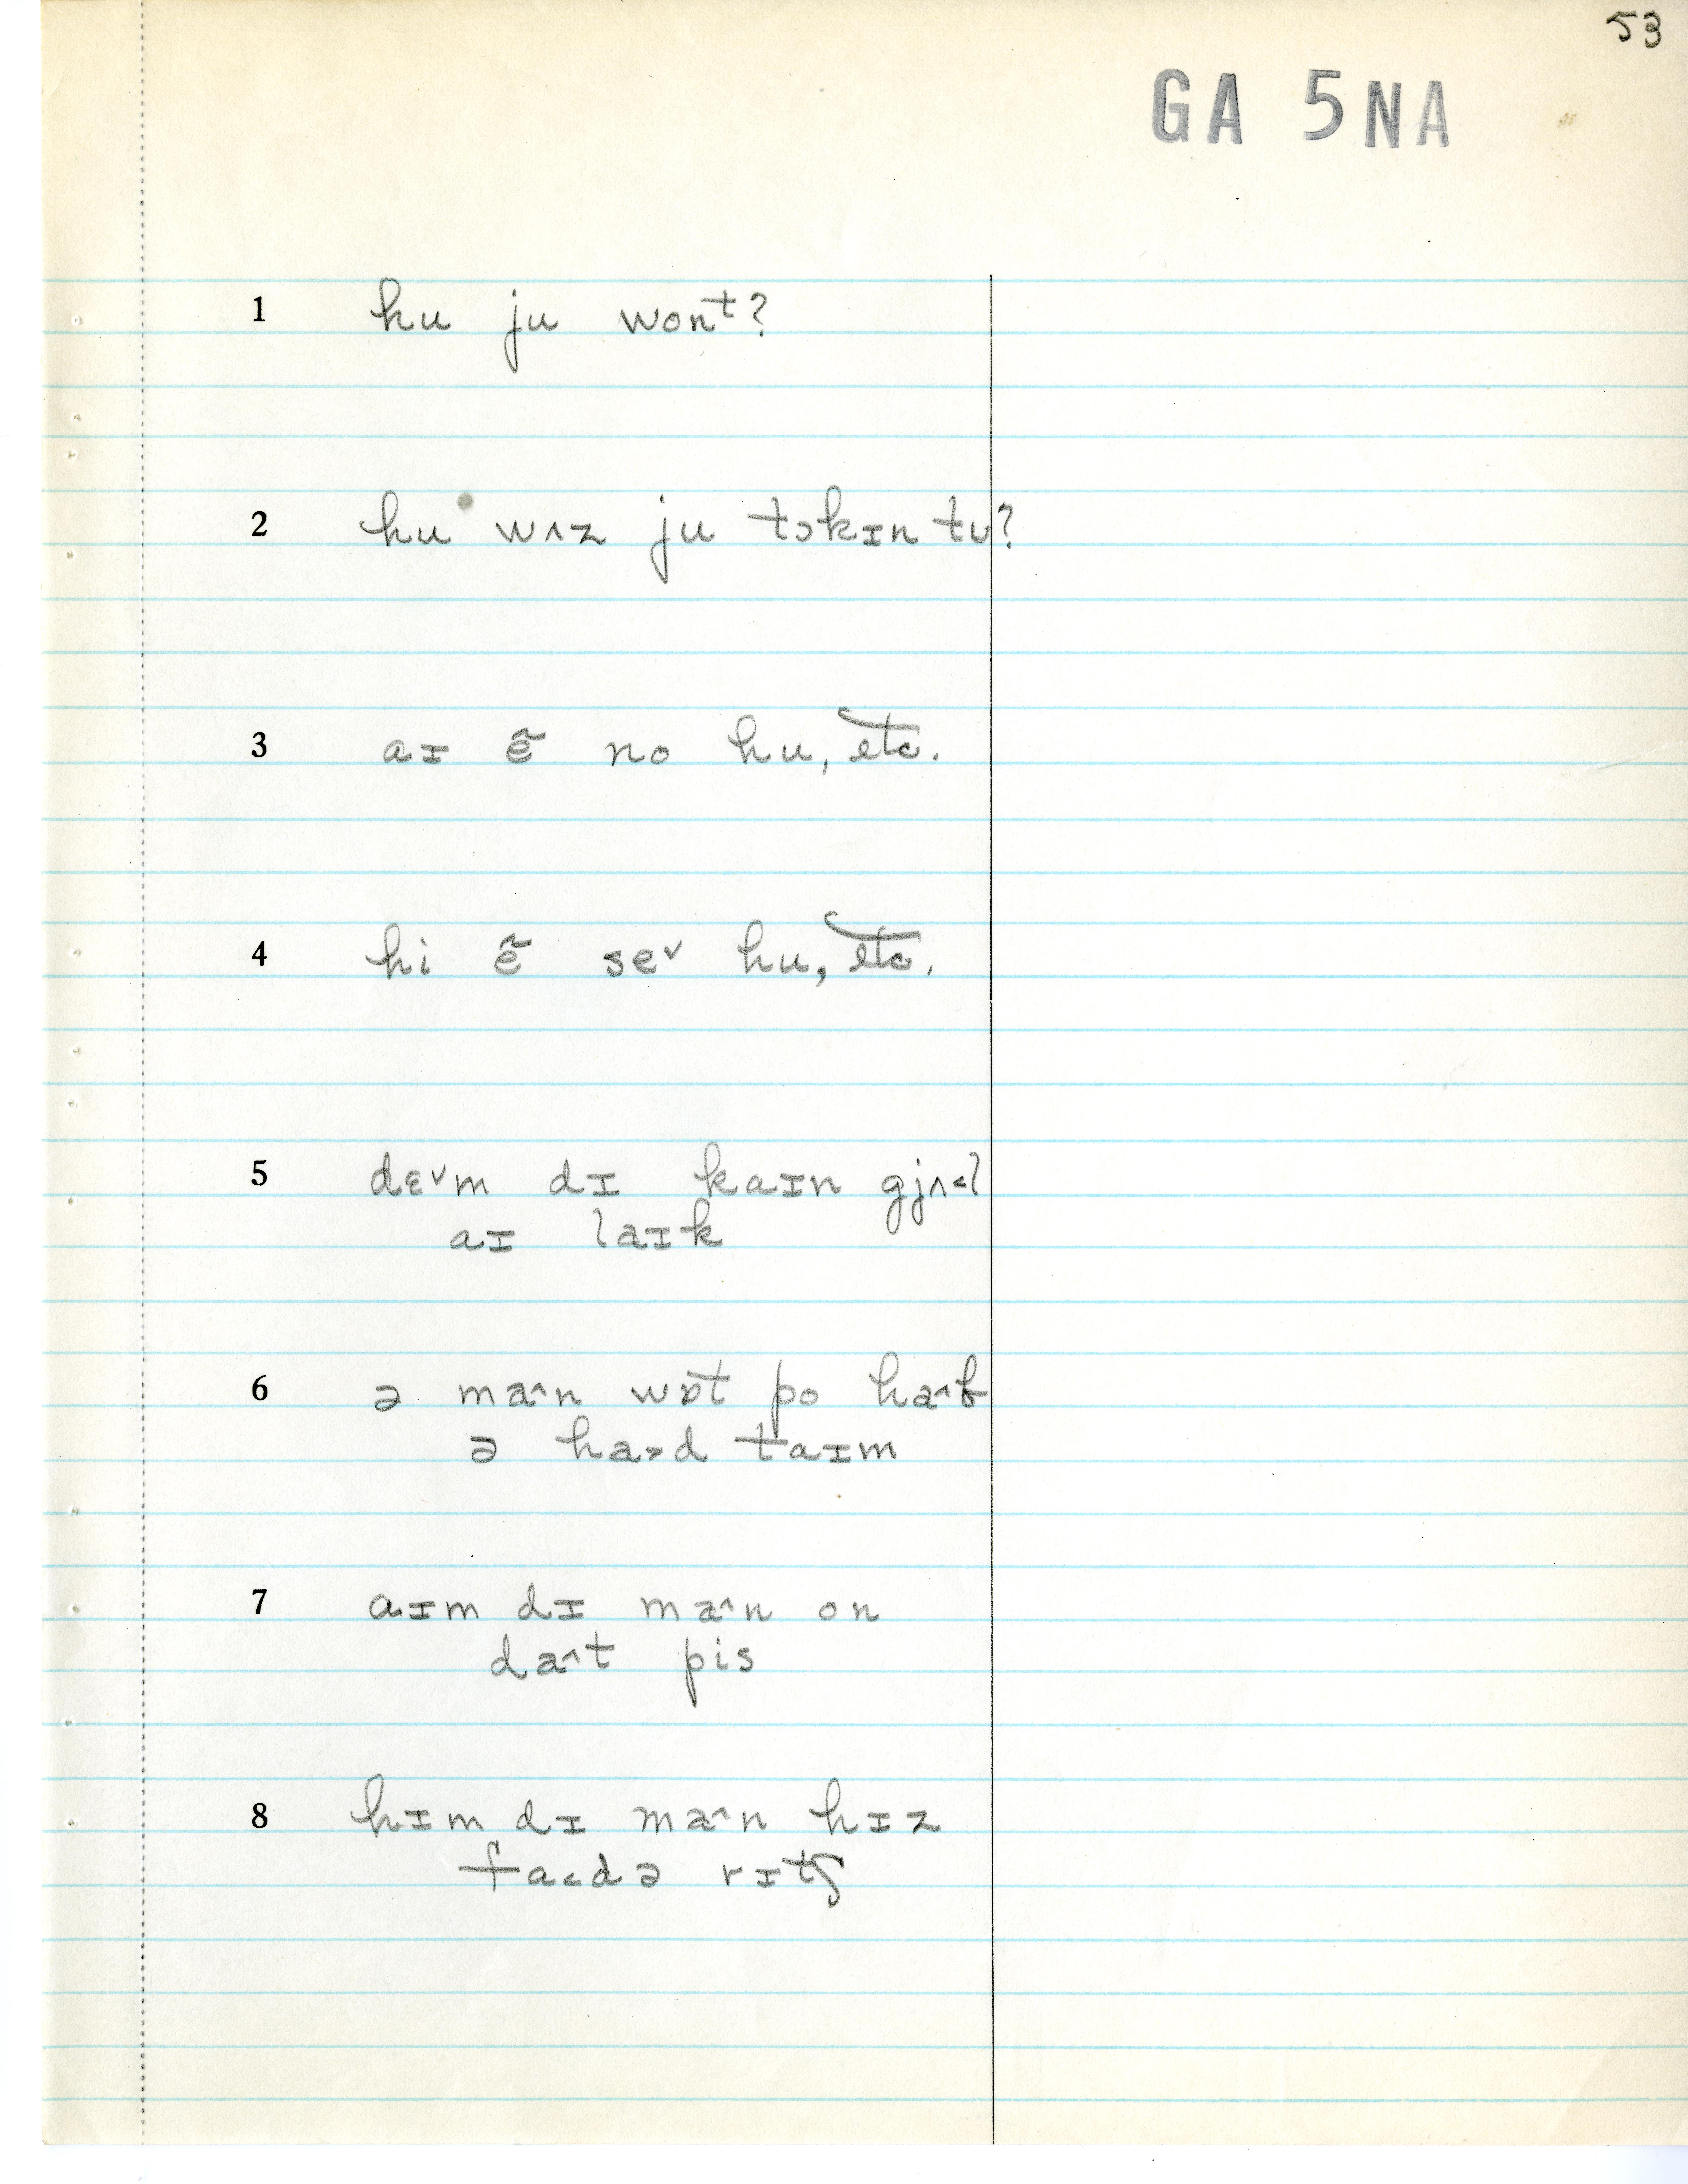 53
GA 5NA
1 hu ju wonᵗ?
2 hu wʌz ju tɔkɪn tu?
3 aɪ ẽ no hu, etc.
4 hi ẽ se˅ hu, etc.
5 dɛ˅m dɪ kaɪn gjʌ˂l
aɪ laɪk
6 ə ma˄n wɒt po ha˄b
ə ha˃d taɪm
7 aɪm dɪ ma˄n on
da˄t pis
8 hɪm dɪ ma˄n hɪz
fa˂də rɪtʃ